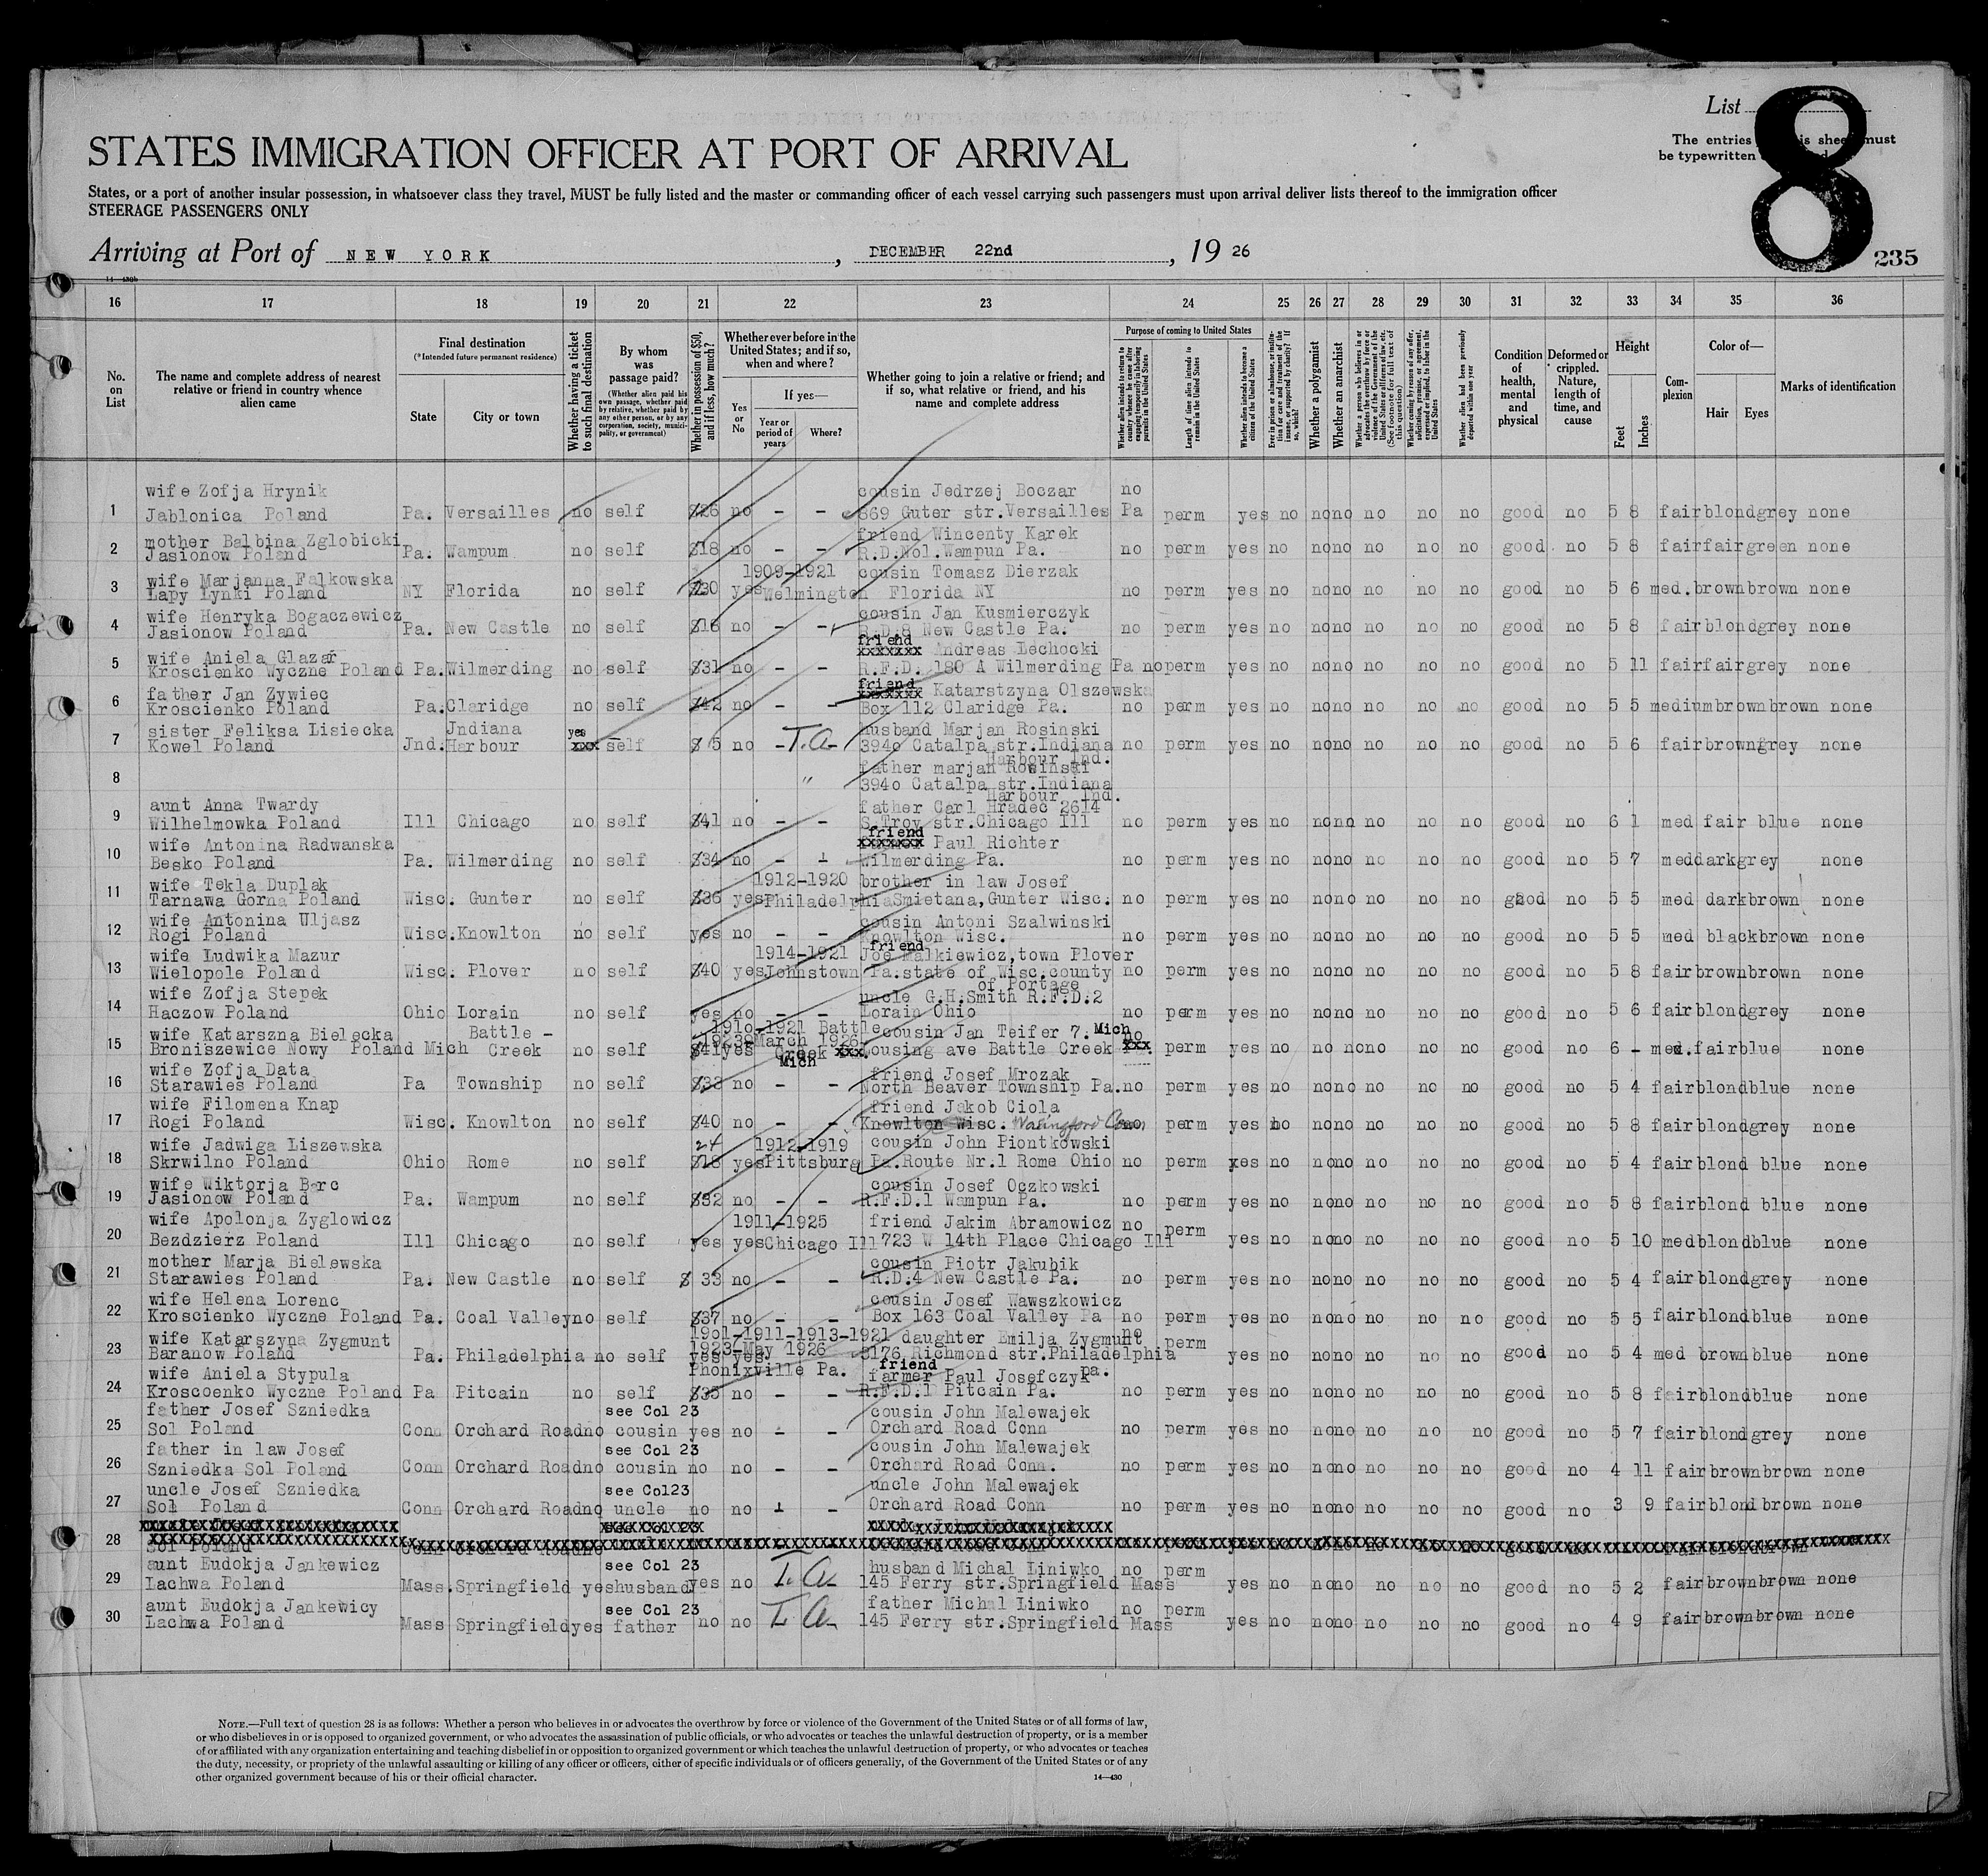 List 8
The entries is sheet must
be typewritten
STATES IMMIGRATION OFFICER AT PORT OF ARRIVAL
States, or a port of another insular possession, in whatsoever class they travel, MUST be fully listed and the master or commanding officer of each vessel carrying such passengers must upon arrival deliver lists thereof to the immigration officer
STEERAGE PASSENGERS ONLY
Arriving at Port of NEW YORK, DECEMBER 22nd, 19 26
235
16 17 18 19 20 21 22 23 24 25 26 27 28 29 30 31 32 33 34 35 36
No. on List
The name and complete address of nearest relative or friend in country whence alien came
Final destination
(*Intended future permanent residence)
State
City or town
Whether having a ticket to such final destination
By whom was passage paid?
(Whether alien paid his own passage, whether paid by relative, whether paid by any other person, or by any corporation, society, municipality, or government)
Whether in possession of $50, and if less, how much?
Whether ever before in the United States; and if so, when and where?
Yes or No
If yes—
Year or period of years
Where?
Whether going to join a relative or friend; and if so, what relative or friend, and his name and complete address
Purpose of coming to United States
Whether alien intends to return to country whence he came after engaging temporarily in laboring pursuits in the United States
Length of time alien intends to remain in the United States
Whether alien intends to become a citizen of the United States
Ever in prison or almshouse, or institution for care and treatment of the insane, or supported by charity? If so, which?
Whether a polygamist
Whether an anarchist
Whether a person who believes in or advocates the overthrow by force or violence of the Government of the United States or all forms of law, etc. (See footnote for full text of this question)
Whether coming by reason of any offer, solicitation, promise, or agreement, expressed or implied, to labor in the United States
Whether alien had been previously deported within one year
Condition of health, mental and physical
Deformed or crippled. Nature, length of time, and cause
Height
Feet
Inches
Complexion
Color of—
Hair
Eyes
Marks of identification
wife Zofja Hrynik cousin Jedrzej Boczar no
1 Jablonica Poland Pa. Versailles no self $26 no - - 669 Guter str.Versailles Pa perm yes no no no no no no good no 5 8 fair blond grey none
mother Balbina Zglobicki friend Wincenty Karek
2 Jasionow Poland Pa. Wampum no self $18 no - - R.D.No1.Wampun Pa. no perm yes no no no no no no good no 5 8 fair fair green none
wife Marjanna Falkowska 1909-1921 cousin Tomasz Dierzak
3 Lapy Lynki Poland NY Florida no self $30 yes Welmington Florida NY no perm yes no no no no no no good no 5 6 med. brown brown none
wife Henryka Bogaczewicz cousin Jan Kusmierczyk
4 Jasionow Poland Pa. New Castle no self $16 no - - R.D.8 New Castle Pa. no perm yes no no no no no no good no 5 8 fair blond grey none
wife Aniela Glazar friend xxxxxxx Andreas Lechocki
5 Kroscienko Wyczne Poland Pa. Wilmerding no self $31 no - - R.F.D. 180 A Wilmerding Pa no perm yes no no no no no no good no 5 11 fair fair grey none
father Jan Zywiec friend xxxxxxx Katarstzyna Olszewska
6 Kroscienko Poland Pa. Claridge no self $42 no - - Box 112 Claridge Pa. no perm yes no no no no no no good no 5 5 medium brown brown none
sister Feliksa Lisiecka Jndiana yes husband Marjan Rosinski
7 Kowel Poland Jnd. Harbour xxx self $ 5 no - T.A- 3940 Catalpa str.Indiana no perm yes no no no no no no good no 5 6 fair brown grey none
Harbour Ind.
father marjan Rowinski
8 " 3940 Catalpa str.Indiana
Harbour Ind.
aunt Anna Twardy father Carl Hradec 2614
9 Wilhelmowka Poland Ill Chicago no self $41 no - - S.Troy str.Chicago Ill no perm yes no no no no no no good no 6 1 med fair blue none
wife Antonina Radwanska friend xxxxxxx Paul Richter
10 Besko Poland Pa. Wilmerding no self $34 no - - Wilmerding Pa. no perm yes no no no no no no good no 5 7 med dark grey none
wife Tekla Duplak 1912-1920 brother in law Josef
11 Tarnawa Gorna Poland Wisc. Gunter no self $36 yes Philadelphia Smietana, Gunter Wisc. no perm yes no no no no no no good no 5 5 med dark brown none
wife Antonina Uljasz cousin Antoni Szalwinski
12 Rogi Poland Wisc. Knowlton no self yes no - - Knowlton Wisc. no perm yes no no no no no no good no 5 5 med black brown none
wife Ludwika Mazur 1914-1921 friend Joe Malkiewicz, town Plover
13 Wielopole Poland Wisc. Plover no self $40 yes Johnstown Pa. state of Wisc. county no perm yes no no no no no no good no 5 8 fair brown brown none
of Portage
wife Zofja Stepek uncle G.H.Smith R.F.D.2
14 Haczow Poland Ohio Lorain no self yes no - - Lorain Ohio no perm yes no no no no no no good no 5 6 fair blond grey none
wife Katarszna Bielecka Battle - 1910-1921 Battle cousin Jan Teifer 7. Mich no
1923-March 1926
15 Broniszewice Nowy Poland Mich Creek no self $41 yes Creek xxx ousing ave Battle Creek xxx perm yes no no no no no no good no 6 - med. fair blue none
Mich
wife Zofja Data friend Josef Mrozak
16 Starawies Poland Pa Township no self $38 no - - North Beaver Township Pa. no perm yes no no no no no no good no 5 4 fair blond blue none
wife Filomena Knap friend Jakob Ciola
17 Rogi Poland Wisc. Knowlton no self $40 no - - Knowlton Wisc. Walingford Conn no perm yes no no no no no no good no 5 8 fair blond grey none
wife Jadwiga Liszewska 24 1912-1919 cousin John Piontkowski
18 Skrwilno Poland Ohio Rome no self $18 yes Pittsburg Pa. Route Nr.1 Rome Ohio no perm yes no no no no no no good no 5 4 fair blond blue none
wife Wiktorja Barc cousin Josef Oczkowski
19 Jasionow Poland Pa. Wampum no self $32 no - - R.F.D.1 Wampun Pa. no perm yes no no no no no no good no 5 8 fair blond blue none
wife Apolonja Zyglowicz 1911-1925 friend Jakim Abramowicz no
20 Bezdzierz Poland Ill Chicago no self yes yes Chicago Ill 723 W 14th Place Chicago Ill perm yes no no no no no no good no 5 10 med blond blue none
mother Marja Bielewska cousin Piotr Jakubik
21 Starawies Poland Pa. New Castle no self $ 33 no - - R.D.4 New Castle Pa. no perm yes no no no no no no good no 5 4 fair blond grey none
wife Helena Lorenc cousin Josef Wawszkowicz
22 Kroscienko Wyczne Poland Pa. Coal Valley no self $37 no - - Box 163 Coal Valley Pa no perm yes no no no no no no good no 5 5 fair blond blue none
wife Katarszyna Zygmunt 1901-1911-1913-1921 daughter Emilja Zygmunt no
1923-May 1926
23 Baranow Poland Pa. Philadelphia no self yes yes 3176 Richmond str.Philadelphia perm yes no no no no no no good no 5 4 med brown blue none
Phonixville Pa. pa.
wife Aniela Stypula friend farmer Paul Josefczyk
24 Kroscoenko Wyczne Poland Pa Pitcain no self $35 no - - R.F.D.1 Pitcain Pa. no perm yes no no no no no no good no 5 8 fair blond blue none
father Josef Szniedka see Col 23 cousin John Malewajek
25 Sol Poland Conn Orchard Road no cousin yes no - - Orchard Road Conn no perm yes no no no no no no good no 5 7 fair blond grey none
father in law Josef see Col 23 cousin John Malewajek
26 Szniedka Sol Poland Conn Orchard Road no cousin no no - - Orchard Road Conn. no perm yes no no no no no no good no 4 11 fair brown brown none
uncle Josef Szniedka see Col23 uncle John Malewajek
27 Sol Poland Conn Orchard Road no uncle no no - - Orchard Road Conn no perm yes no no no no no no good no 3 9 fair blond brown none
28
aunt Eudokja Jankewicz see Col 23 husband Michal Liniwko no perm
29 Lachwa Poland Mass. Springfield yes husband yes no T.A- 145 Ferry str.Springfield Mass yes no no no no no no good no 5 2 fair brown brown none
aunt Eudokja Jankewicy see Col 23 father Michal Liniwko no perm
30 Lachwa Poland Mass Springfield yes father no no T A- 145 Ferry str.Springfield Mass yes no no no no no no good no 4 9 fair brown brown none
NOTE.—Full text of question 28 is as follows: Whether a person who believes in or advocates the overthrow by force or violence of the Government of the United States or of all forms of law,
or who disbelieves in or is opposed to organized government, or who advocates the assassination of public officials, or who advocates or teaches the unlawful destruction of property, or is a member
of or affiliated with any organization entertaining and teaching disbelief in or opposition to organized government or which teaches the unlawful destruction of property, or who advocates or teaches
the duty, necessity, or propriety of the unlawful assaulting or killing of any officer or officers, either of specific individuals or of officers generally, of the Government of the United States or of any
other organized government because of his or their official character.
14—430